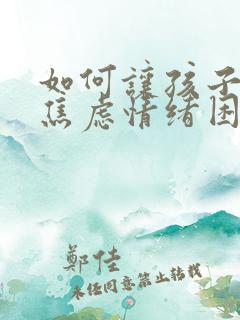 如何讓孩子
焦虑情绪困
鄭佳
未经同意禁止转载